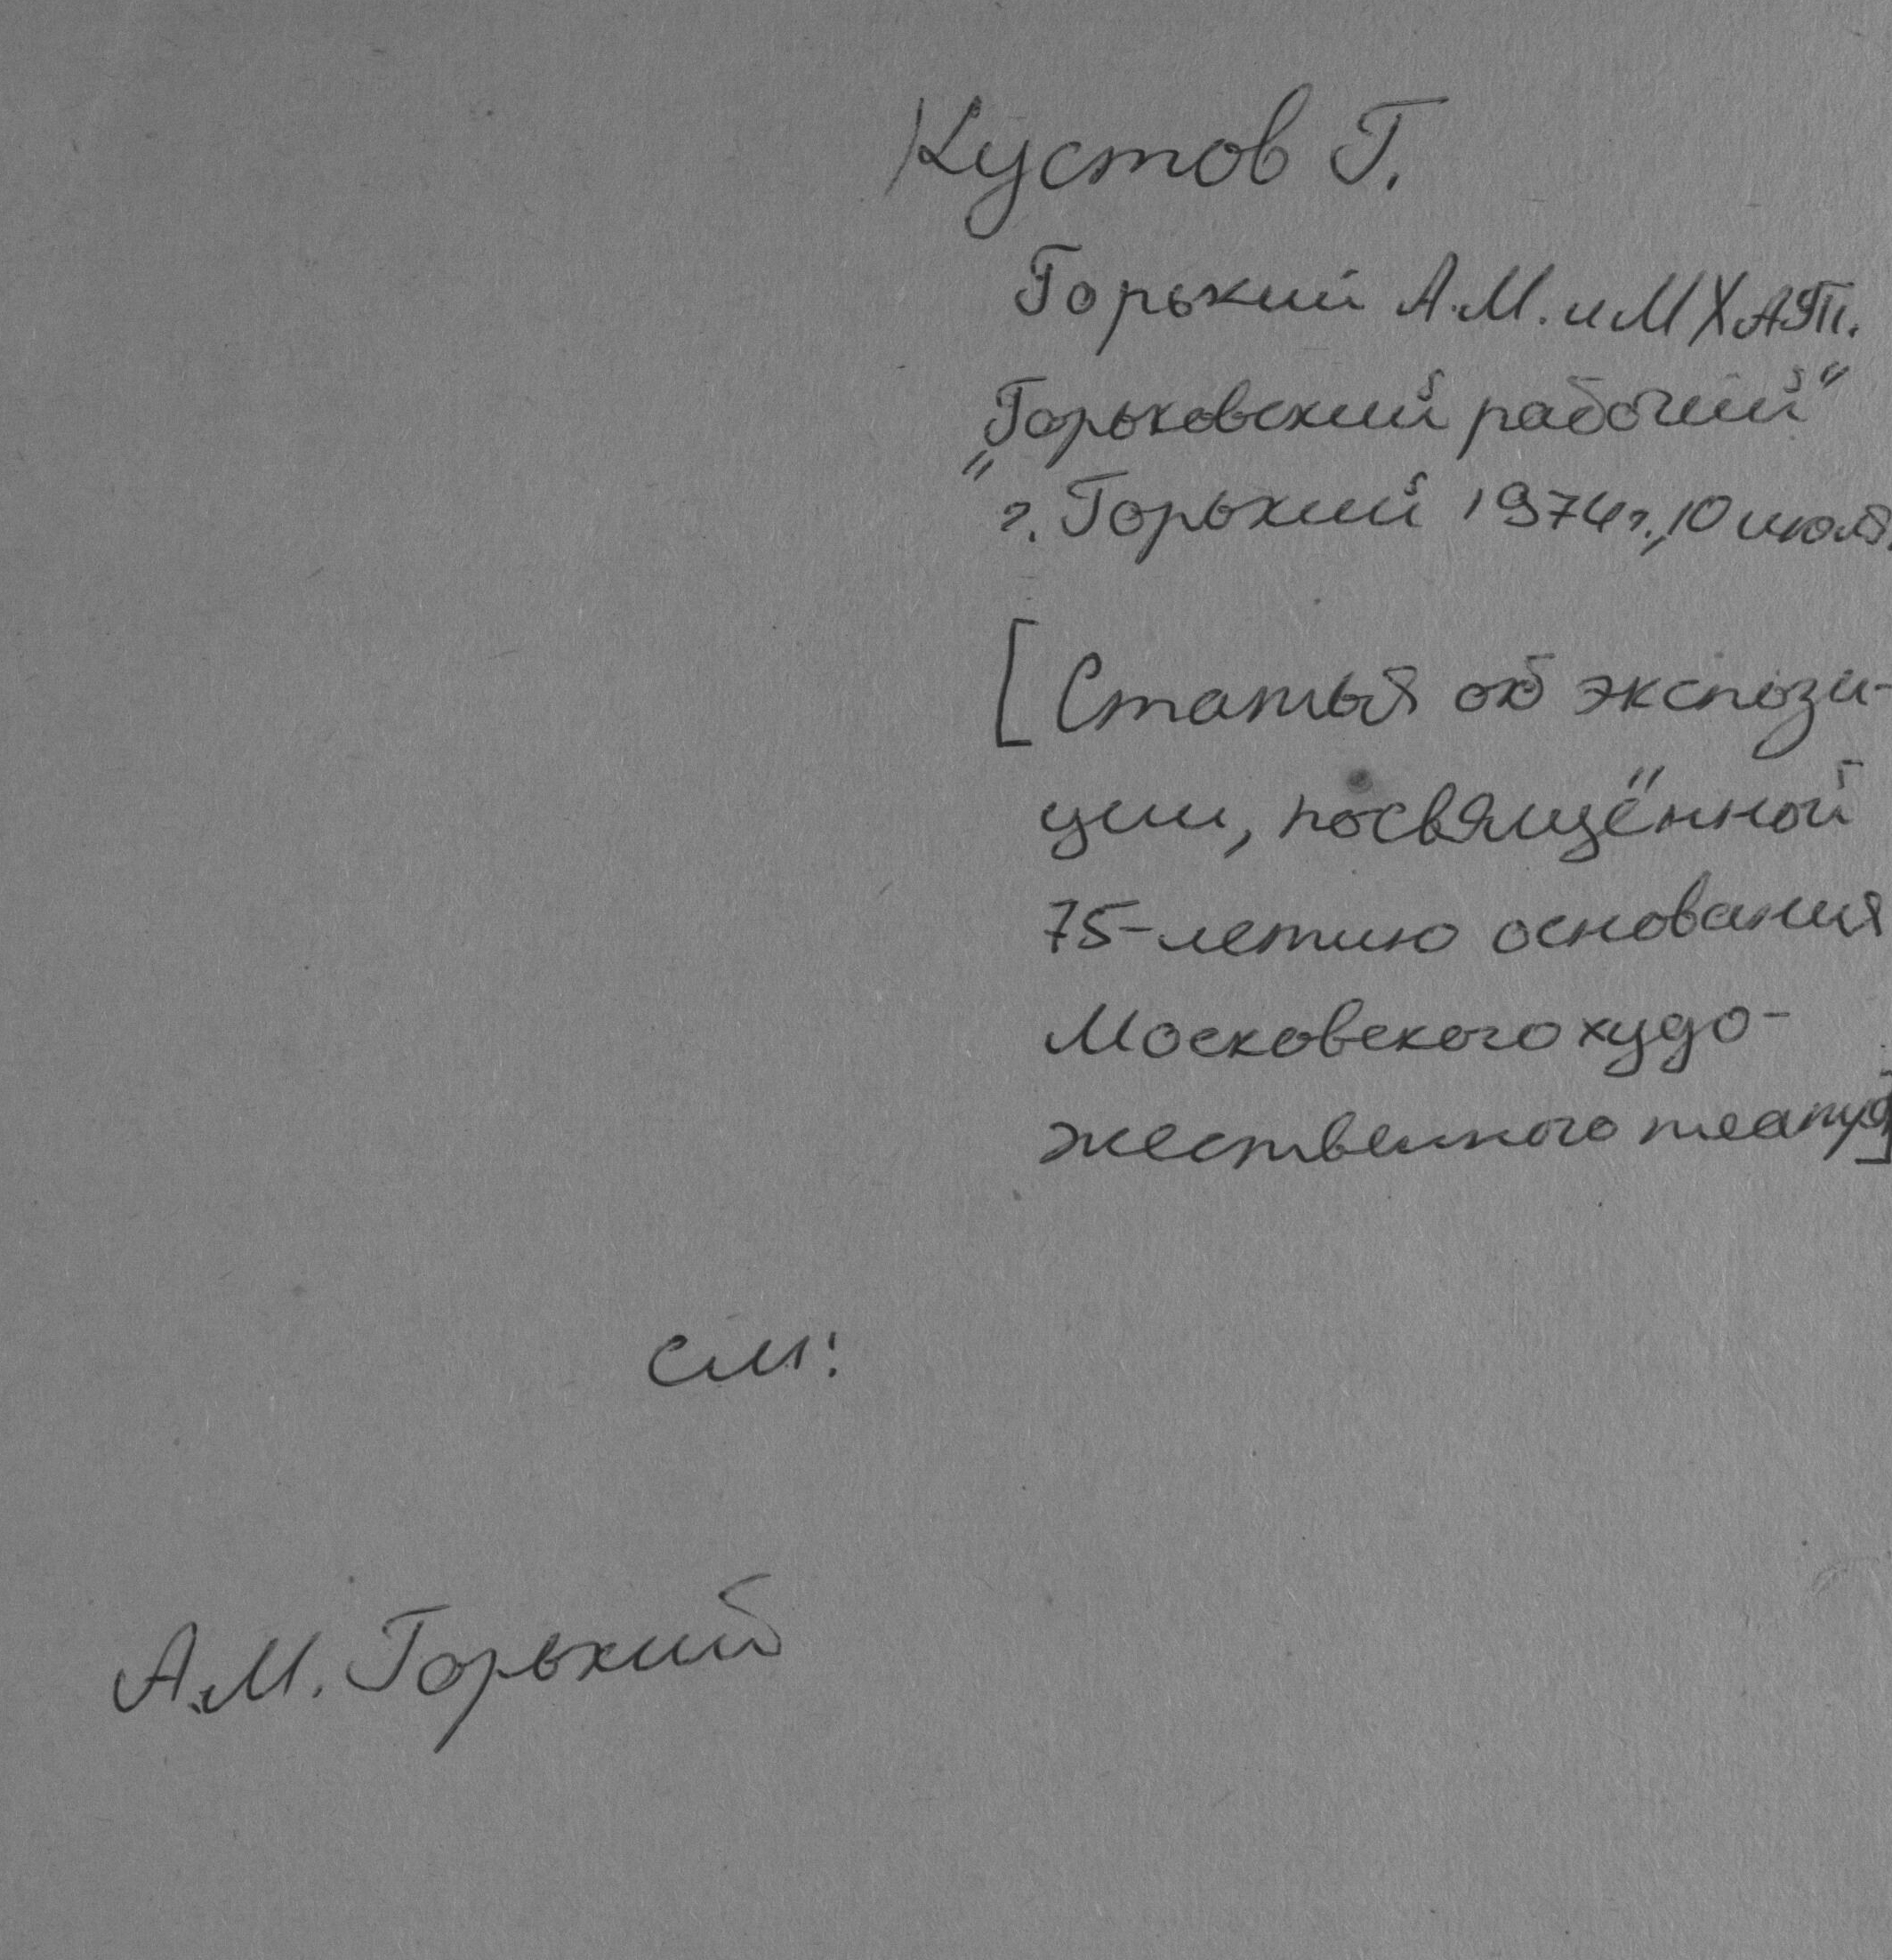 Кустов Г.
Горький А.М. и МХАТ.
„Горьковский рабочий“
г. Горький 1974г., 10 июля.
[Статья об экспози-
ции, посвящённой
75-летию основания
Московского худо-
жественного театра]
см:
А.М. Горький